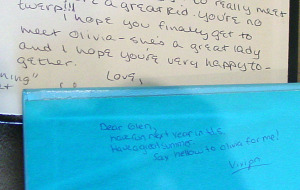 to really meet
twerp!!! a great kid. you're no
I hope you finally get to
meet Olivia - she's a great lady
and I hope you're very happy to-
gether.
Love,
Dear Glen,
have fun next year in H.S.
Have a good summer
Say hellow to olivia for me!
Vivian